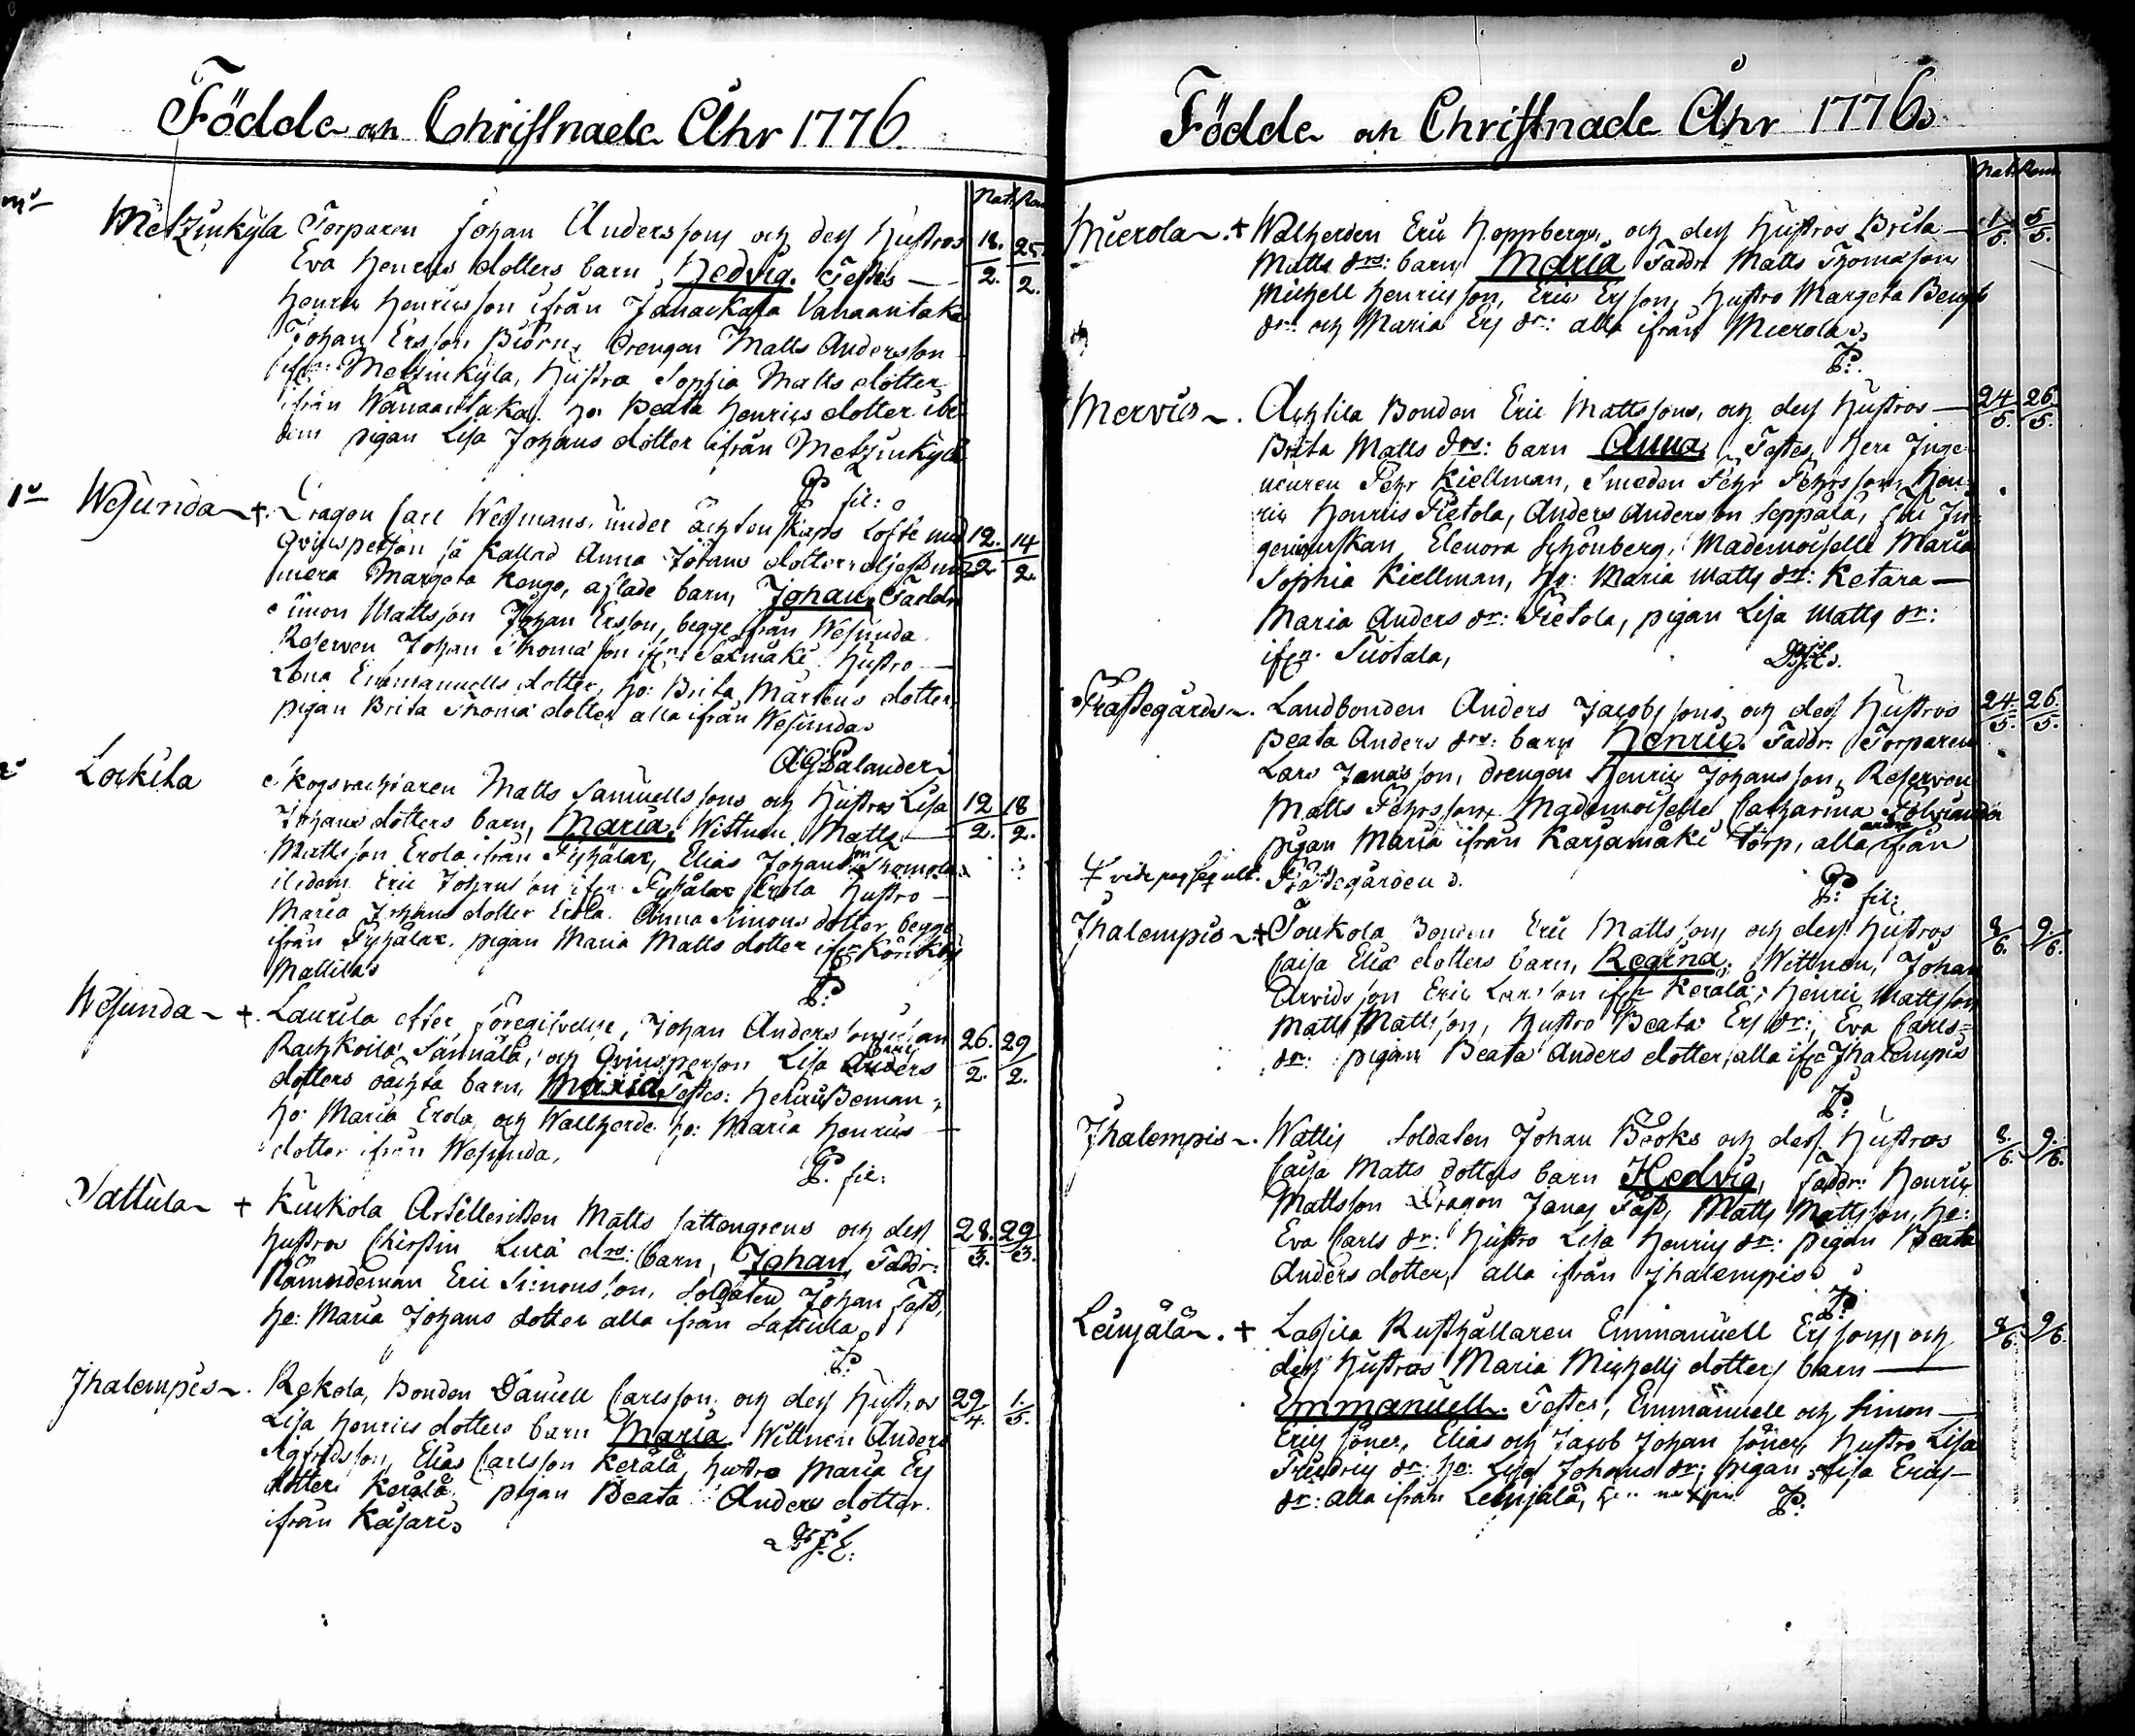 Födde och Christnade Åhr 1776.
Nat: Ren
Metzinkylä Torparen Johan Anderssons och dess hustros 18. 25.
Eva Henrics dotters barn, Hedvig. Testes — 2. 2.
Henric Henricsson ifrån Janackala Vanaantaka
Johan Ersson Biörn, Drengen Matts Andersson
ifrn: Metzinkylä, hustro Sophia Matts dotter
ifrån Wånaantaka, ho: Beata Henrics dotter ibi
dem pigan Lisa Johans dotter ifrån Metzinkylä
P. fil:
Wesunda +. Dragon Carl Wegmans, under ächtenskaps Löfte med 12. 14
Qvinsperson så kallad Anna Johans dotter 2. 2.
mera Margeta Kengo, aflade barn, Johan, Faddr
Simon Mattsson Johan Ersson, begge ifrån Wesunda
Reserven Johan Thomasson ifrn: Salmäki hustro —
Lena Emmanuells dotter, ho: Brita Mårtens dotter
pigan Brita Thomæ dotter alla ifrån Wesunda
AGPalander
Lockila Skogvachtaren Matts Samuellssons och hustros Lisa 12 18
Johans dotters barn, Maria, Wittnen Matts — 2. 2.
Mattsson Erola ifrån Tyhälax, Elias Johansson
ibidem Eric Johansson ifrn Tyhälax Erola hustro —
Maria Johans dotter Erola. Anna Simons dotter begge
ifrån Tyhälax. pigan Maria Matts dotter ifrn
Mattila
P:
Wesunda +. Laurila efter föregifvelse, Johan Anderssons 26. 29
Sannala, och Qvinsperson Lisa 2. 2.
dotters oächta barn, Maria, Testes: Henric Beman,
ho: Maria Erola, och Wallherde ho: Maria Henrics —
dotter ifrån Wesunda,
P. fil:
Sattula + Kuckola Artilleristen Matts Sattengrens och dess 28. 29
hustros Christin Lucæ drs: barn, Johan, Faddr: 3. 3.
Nämndeman Eric Simonsson, Soldaten Johan Fast,
ho: Maria Johans dotter alla ifrån Sattula
P:
Ihalempis. Rekola, Bonden Daniell Carlssons och dess hustros 29/4. 1./5.
Lisa Henrics dotters barn Maria. Wittnen Anders
Elias Carlsson Kerälä, hustro Maria Ers
dotter Kerälä. pigan Beata Anders dotter.
ifrån Kasari
Födde och Christnade Åhr 1776.
Nat: Ren
Mierola. + Walherden Eric Hoppbergs, och dess hustros Brita — 1/5. 5/5.
Matts drs: barn, Maria Faddr. Matts Thomasson,
Michell Henricsson, Eric Ersson, hustro Margeta Bengts
dr: och Maria Ers dr: alla ifrån Mierola.
P:
Mervis. Achtila Bonden Eric Mattssons, och dess hustros — 24/5. 26/5.
Brita Matts drs: barn Anna, Testes, Herr Inge
nieuren Pehr Kiellman, Smeden Pehr Pehrsson, Hen
ric Henrics Pietola, Anders Andersson Seppälä, Fru In
genieurskan Elenora Schönberg, Mademoiselle Maria
Sophia Kiellman, ho: Maria Matts dr: Ketara —
Maria Anders dr: Pietola, pigan Lisa Matts dr:
ifrn. Suotala,
Prästegårds. Landbonden Anders Jacobssons, och dess hustros 24./5. 26./5.
Beata Anders drs: barn Henric. Faddr: Torparen
Lars Jonasson, drengen Henric Johansson, Reserven
Matts Pehrsson, Mademoiselle Catharina Polviander
pigan Maria ifrån Karjamäki torp, alla andra ifrån
vide pag seq ult. Prästegården.
P: fil:
Ihalempis + Toukola Bonden Eric Mattssons och dess hustros 8/6. 9/6.
Caisa Eliæ dotters barn, Regina, Wittnen, Johan
Arvidsson Eric Larsson ifrn Kerälä, Henric Mattsson
Matts Mattsson, hustro Beata Ers dr:, Eva Carls=
dr: pigan Beata Anders dotter, alla ifrn Ihalempis
P:
Ihalempis. Wattis Soldaten Johan Books och dess hustros 8./6. 9./6.
Caisa Matts dotters barn Hedvig, Faddr: Henric
Mattsson Dragon Jonas Fast, Matts Mattsson, ho:
Eva Carls dr: hustro Lisa Henrics dr: pigan Beata
Anders dotter, alla ifrån Ihalempis
P:
Leinjälä. + Lassila Rusthållaren Emmanuell Erssons, och 8/6. 9/6.
dess hustros Maria Michells dotters barn —
Emmanuell. Testes, Emmanuell och Simon —
Erics söner, Elias och Jacob Johan söner, hustro Lisa
Friedrics dr: ho: Lisa Johans dr: pigan Lisa Erics —
dr: alla ifrån Leinjälä,
P: